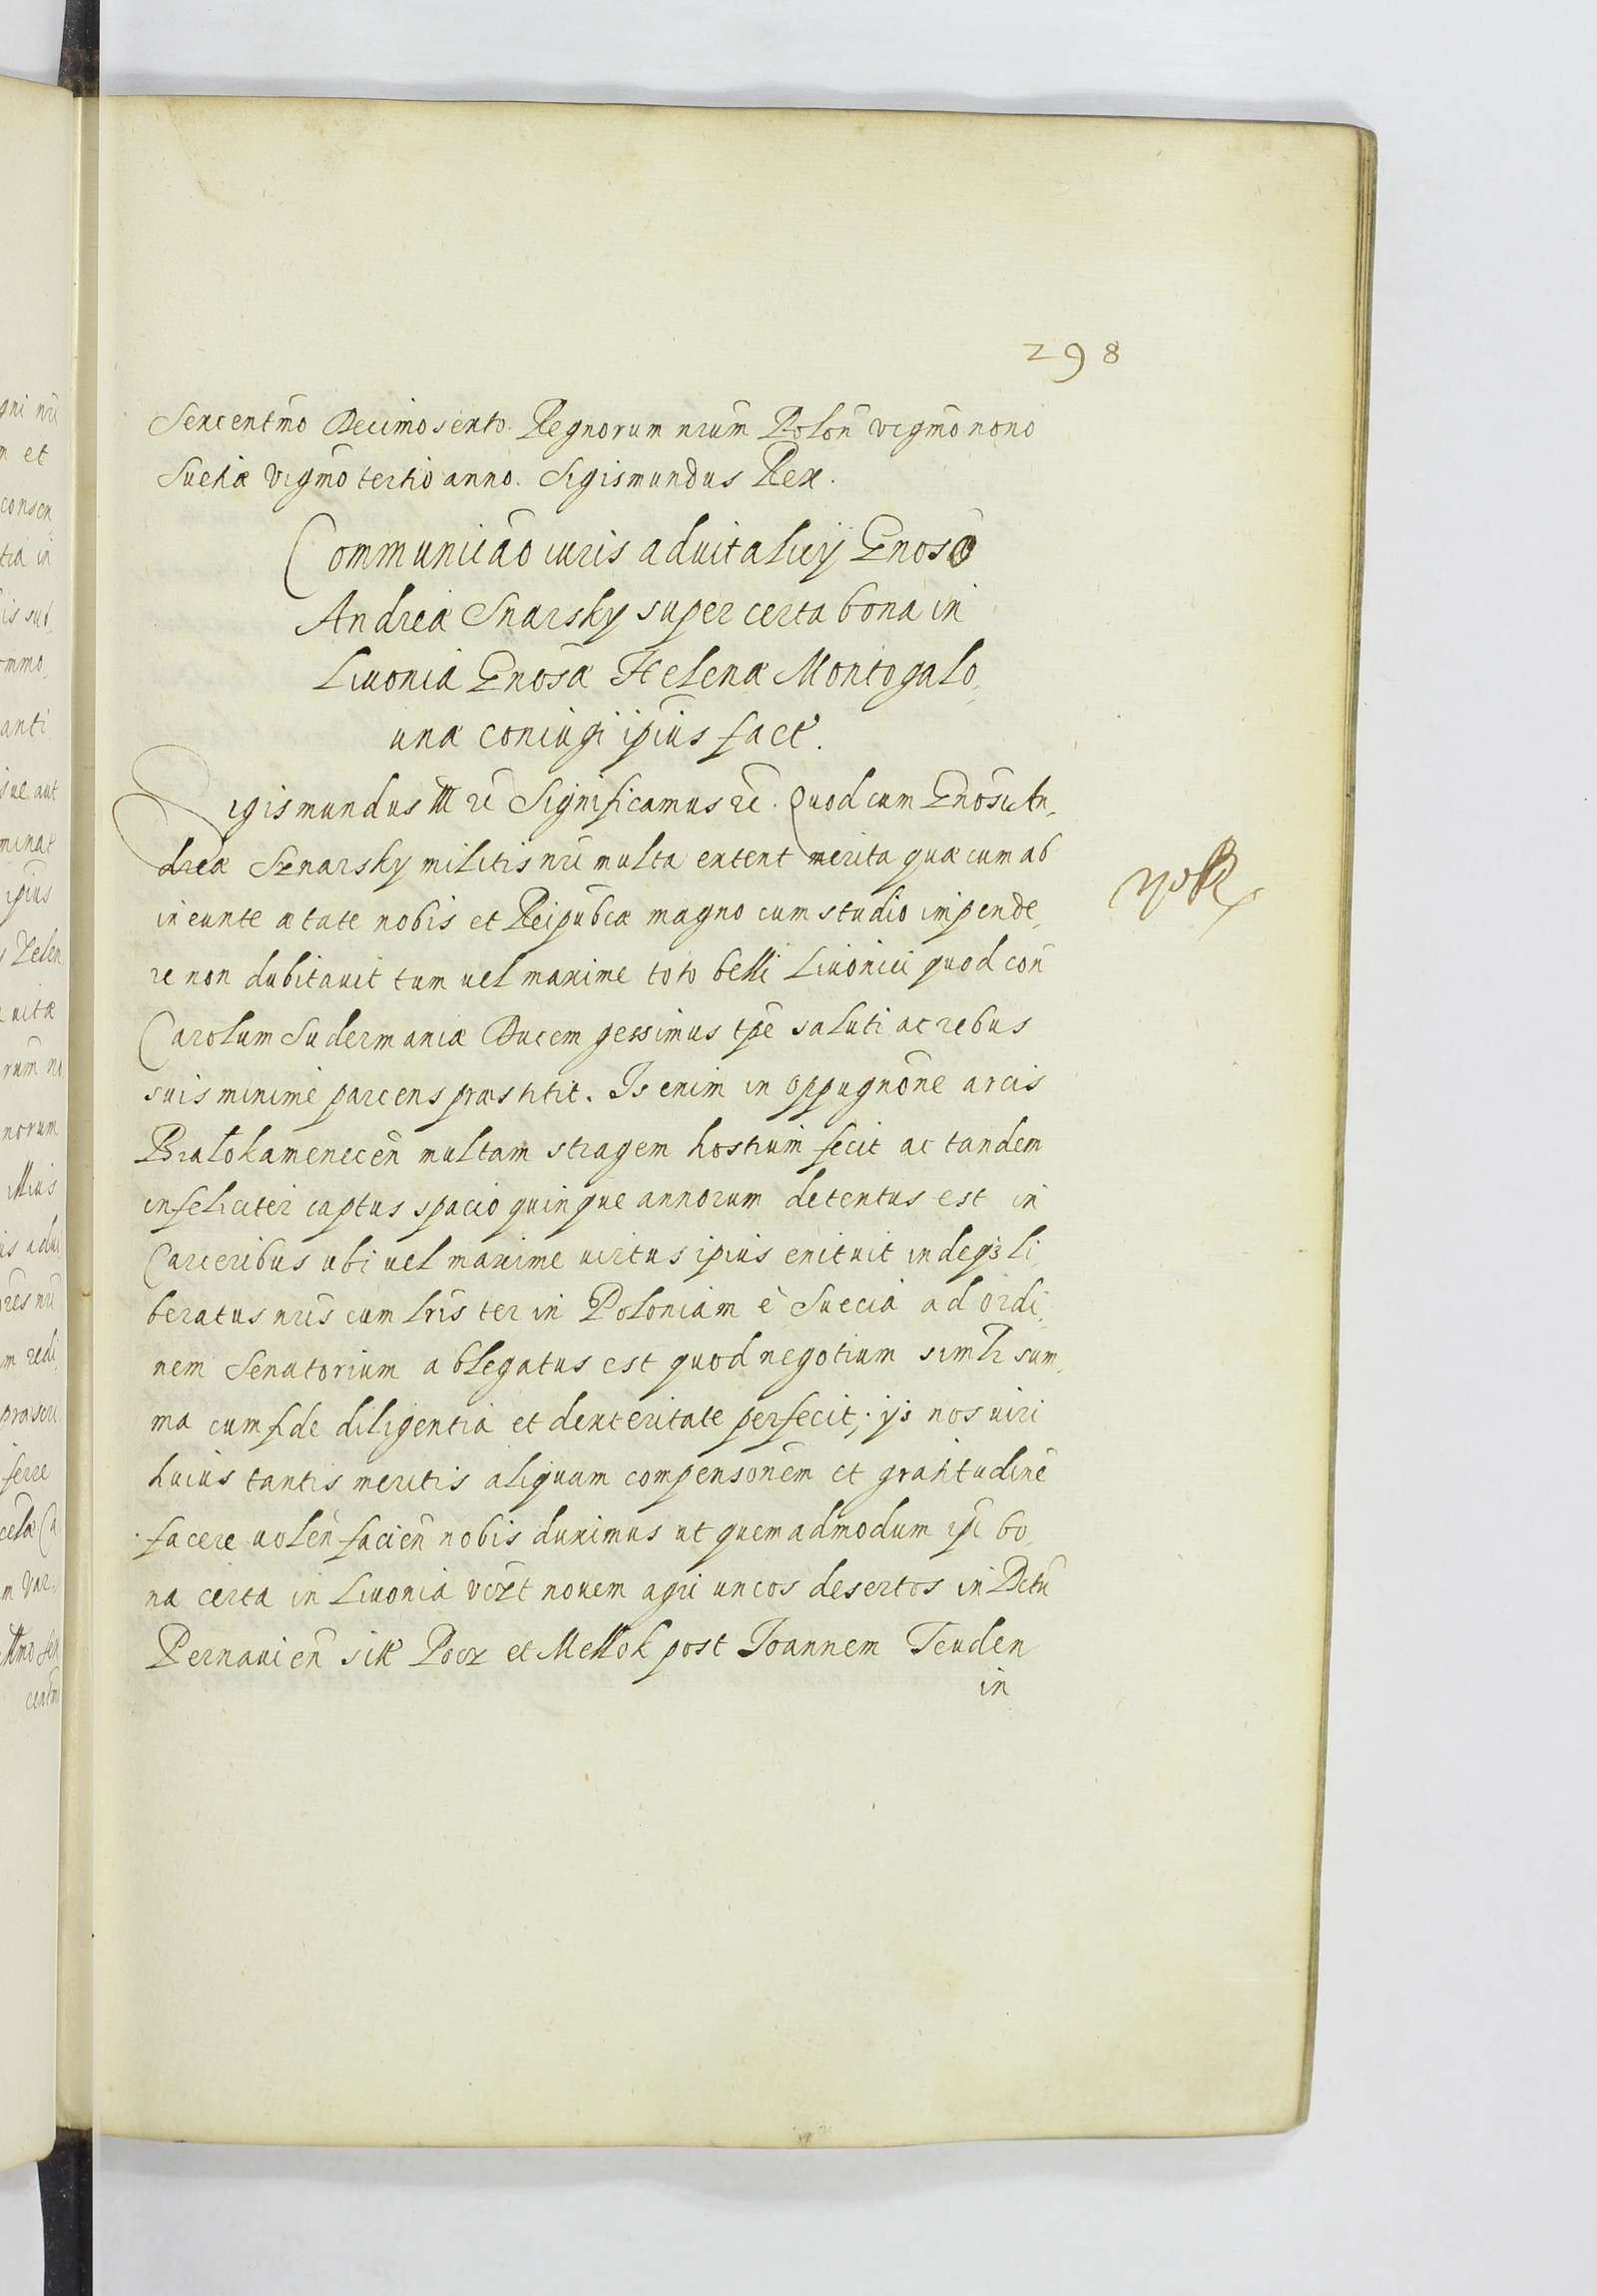 298
Sexcentmo Decimo sexto. Regnorum nrum Polon vigmo nono
Sueciæ vigmo tertio anno. Sigismundus Rex.
Communicao iuris aduitalicy Gnoso
Andreæ Snarsky super certa bona in
Liuonia Gnosæ Helenæ Montogalo,
unæ coniugi ipius fact.
Sigismundus III rc Significamus rc. Quod cum Gnosi An,
dreæ Sznarsky militis nri multa extent merita quæ cum ab
ineunte ætate nobis et Reipubcæ magno cum studio impende,
re non dubitauit tum uel maxime toto belli Liuonici quod con
Carolum Sudermaniæ Ducem gessimus tpe saluti ac rebus
suis minime parcens præstitit. Is enim in oppugnone arcis
Bialokamenecen multam stragem hostium fecit ac tandem
infeliciter captus spacio quinque annorum detentus est in
Carceribus ubi uel maxime uirtus ipius enituit indeqз li,
beratus nris cum lris ter in Poloniam è Suecia ad ordi,
nem Senatorium ablegatus est quod negotium simlr sum,
ma cum fide diligentia et dexteritate perfecit; ys nos uiri
huius tantis meritis aliquam compensonem et gratitudine
facere uolen facien nobis duximus ut quemadmodum ipi bo,
na certa in Liuonia vczt nouem agri uncos desertos in Dctu
Pernauien sitt Pocz et Mellok post Joannem Teuden
in